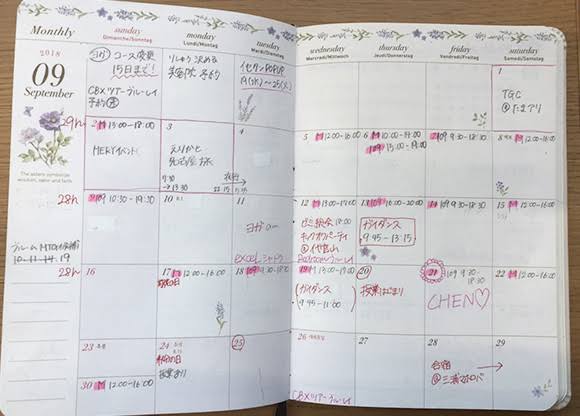 Monthly
2018
09
September
The asters symbolize
wisdom, valor and faith
sunday
Dimanche/Sonntag
monday
Lundi/Montag
tuesday
Mardi/Dienstag
wednesday
Mercredi/Mittwoch
thursday
Jeudi/Donnerstag
friday
Vendredi/Freitag
saturday
Samedi/Samstag
コース変更
15日まで!
CBXツアーブルーレイ
予約
りしゅう決める
予約
イセタンPOPUP
19(水)〜25(火)
1
TGC
@たまアリ
29h
2 13:00-18:00
HERAイベント
3
えりかと
7:30
→13:30
4
5 12:00-16:00
6 13:00-17:00
109
7 109 9:30-18:30
8 12:00-16:00
28h
9 109 10:30-19:30
10
11
ヨガの一
EXCEL
12 13:00-17:00
18:00
キックオフパーティ
@代官山
13 16:00-20:00
ガイダンス
9:45-13:15
14 109 9:30-18:30
15 13:00-17:00
10.11.14.19
28h
16
17 12:00-16:00
敬老の日
18 109 9:30-18:30
19 13:00-17:00
ガイダンス
9:45-11:00
20
授業はじまり
21 109 9:30-
18:30
CHEN♡
22 12:00-16:00
23
24
秋分の日
授業あり
25
26
27
28
合宿
@三浦マホロバ
29
30 12:00-16:00
CBXツアーブルーレイ